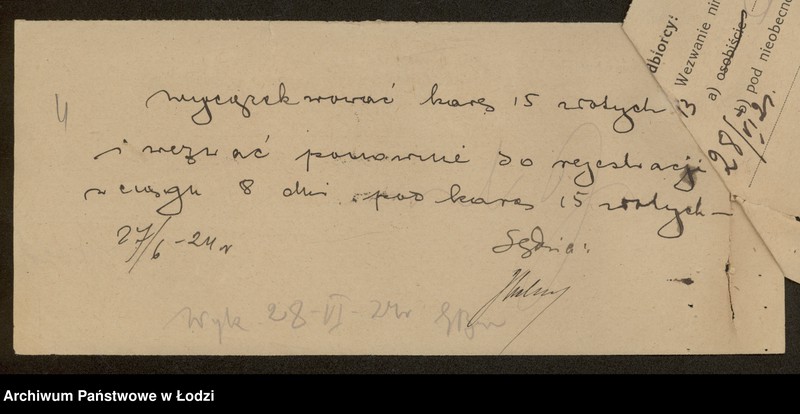 4
wyegzekwować karę 15 złotych
i wezwać ponownie do rejestracji
w ciągu 8 dni pod karą 15 złotych –
27/6 – 24 r
Sędzia:
Wyk 28-VI-24r
dbiorcy:
Wezwanie
a) osobiście
b) pod nieobecno
28/VI
Archiwum Państwowe w Łodzi